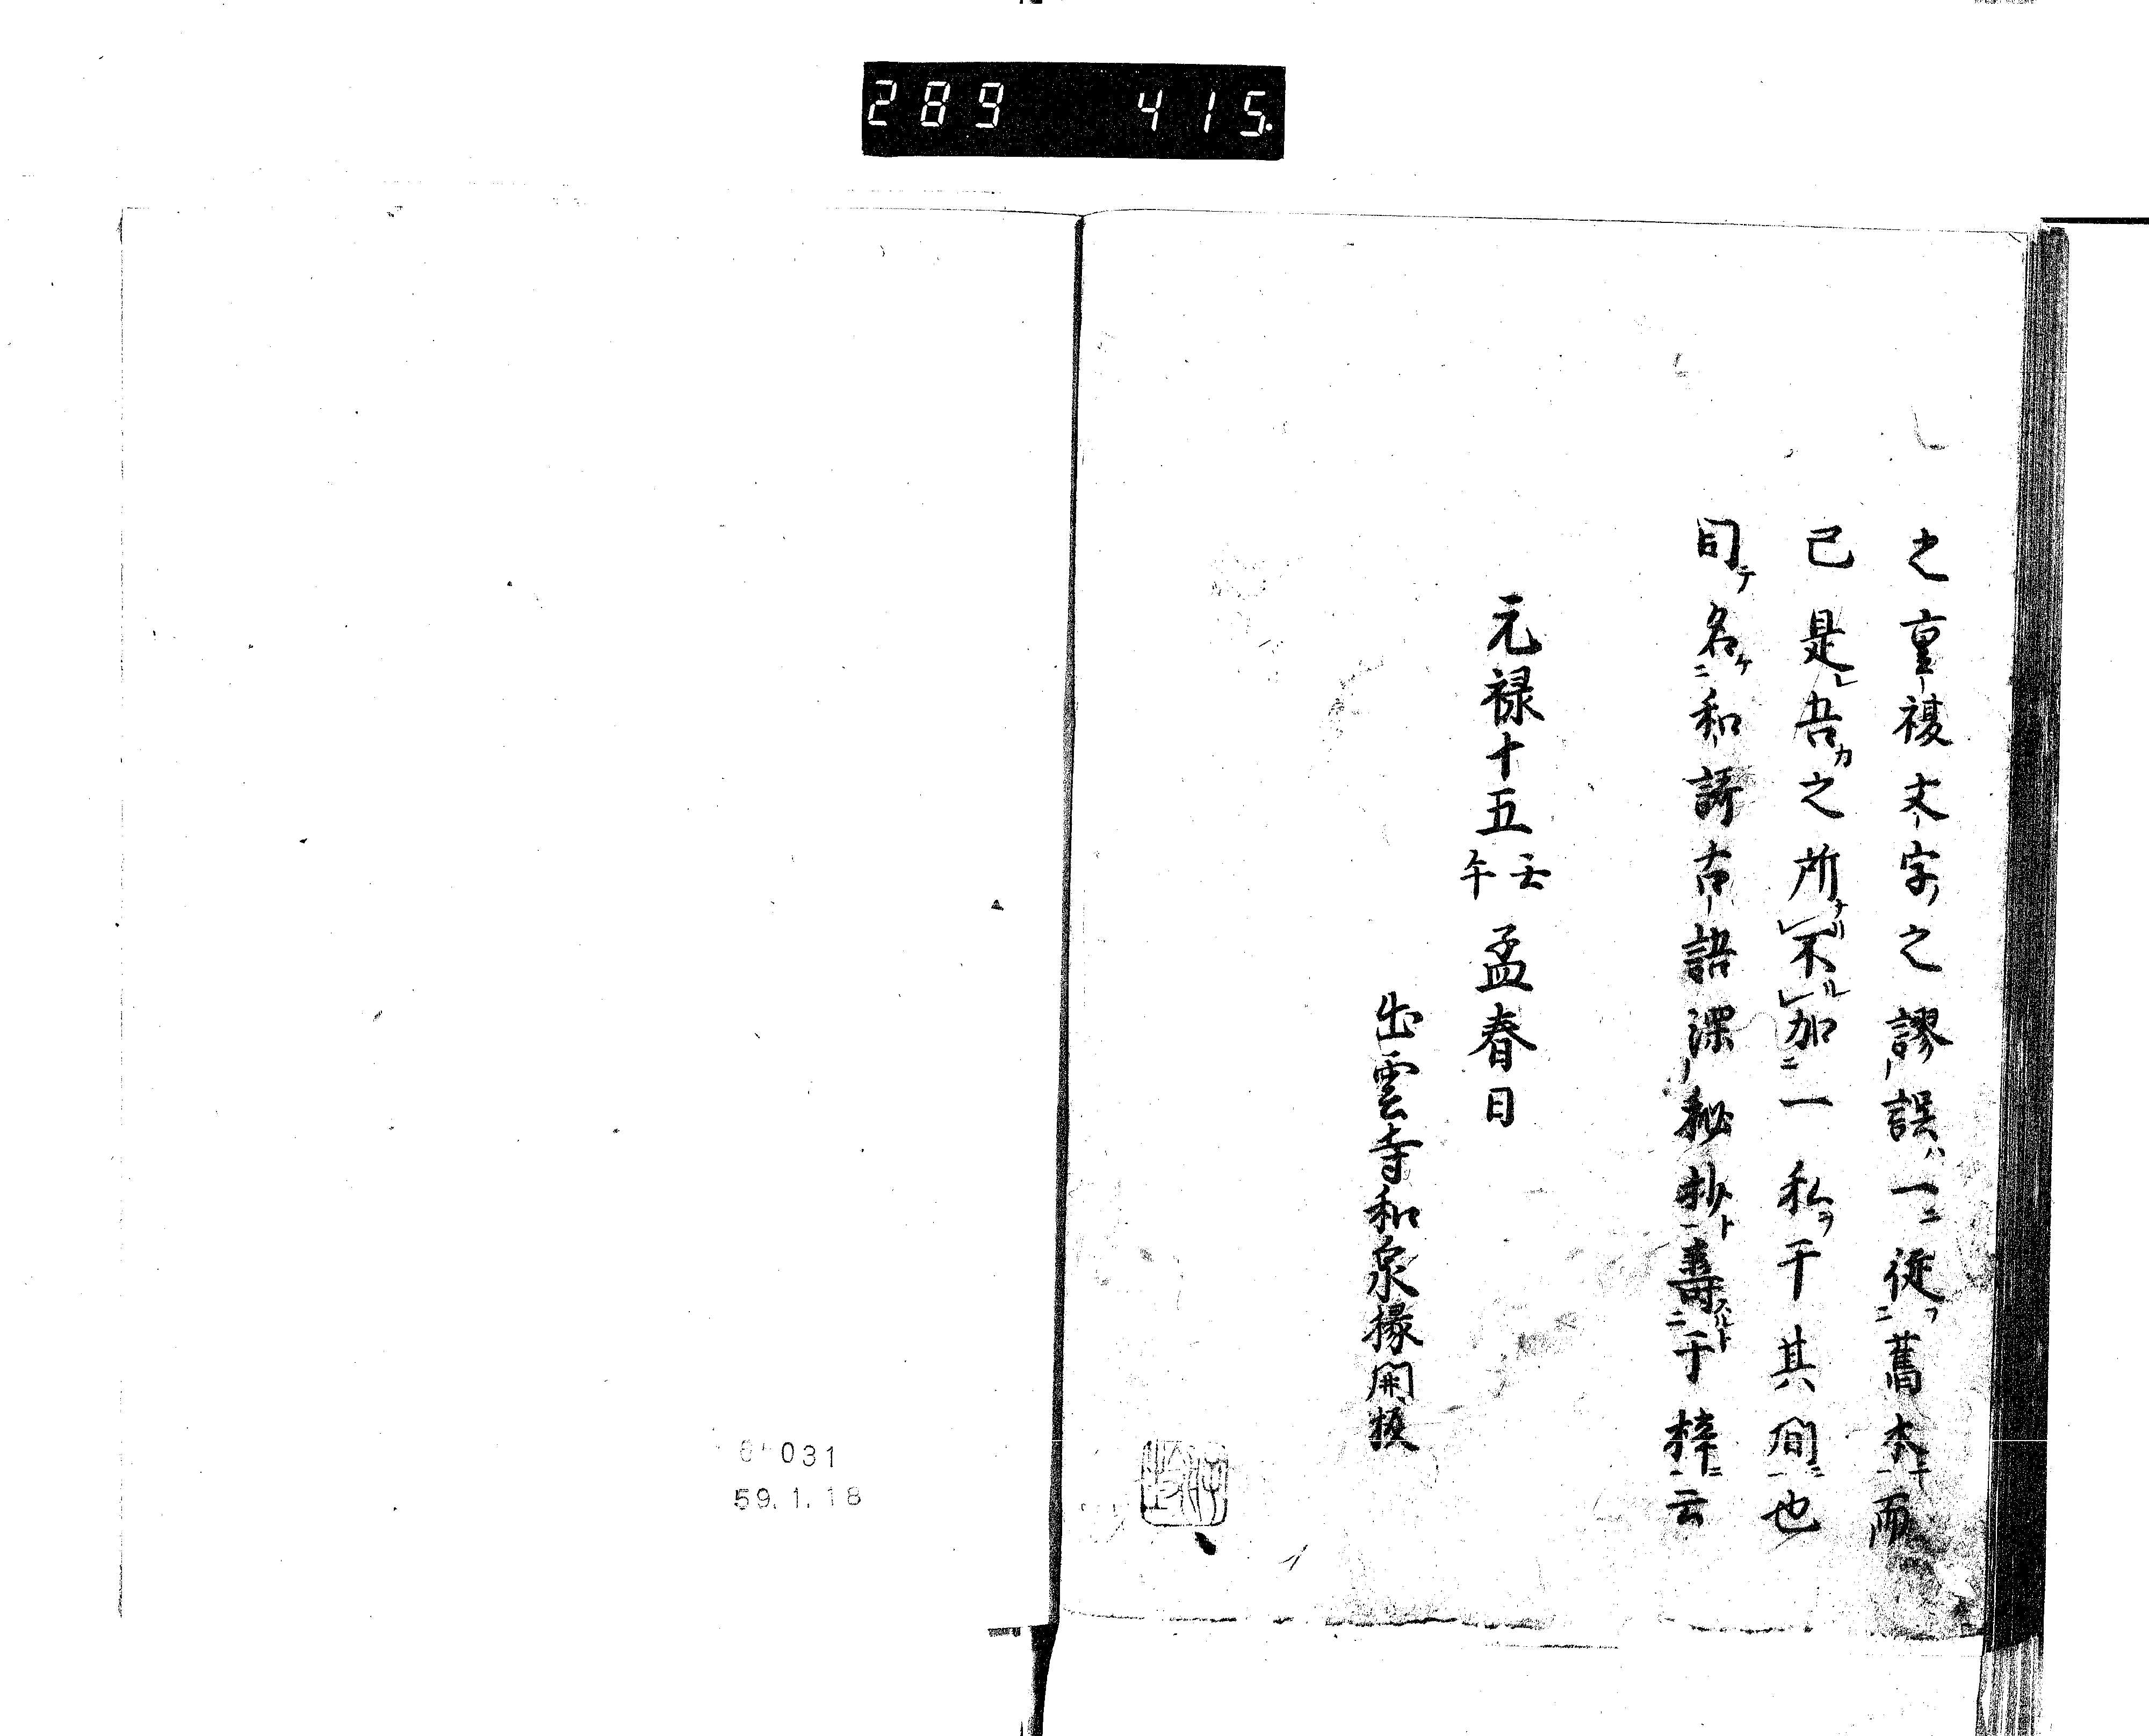 289 415
之重複文字之謬誤ハ一ニ従フ舊本ニ而
已是レ吾カ之所ナリ不ル加一私ヲ于其間ニ也
因テ名ケ和謌古語深秘抄ト壽スルト于梓ニ云
元禄十五壬午孟春日
出雲寺和泉掾開板
031
59.1.18